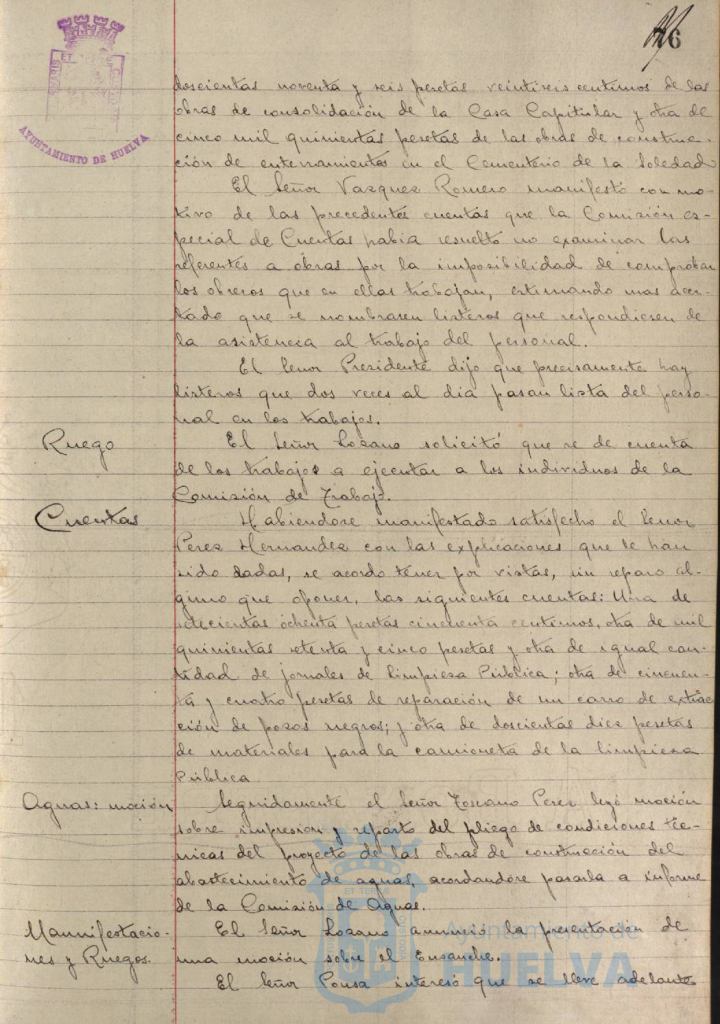 76
AYUNTAMIENTO DE HUELVA
doscientas noventa y seis pesetas veintiseis centimos de las
obras de consolidación de la Casa Capitular y otra de
cinco mil quinientas pesetas de las obras de construc-
ción de enterramientos en el Cementerio de la Soledad
El Señor Vazquez Romero manifestó con mo-
tivo de las precedentes cuentas que la Comisión es-
pecial de Cuentas habia resuelto no examinar las
referentes a obras por la imposibilidad de comprobar
los obreros que en ellas trabajan, estimando mas acer-
tado que se nombrasen listeros que respondiesen de
la asistencia al trabajo del personal.
El Señor Presidente dijo que precisamente hay
listeros que dos veces al dia pasan lista del perso-
nal en los trabajos.
Ruego
El Señor Lozano solicitó que se de cuenta
de los trabajos a ejecutar a los individuos de la
Comisión de Trabajo.
Cuentas
Habiendose manifestado satisfecho el Señor
Perez Hernandez con las explicaciones que le han
sido dadas, se acordo tener por vistas, sin reparo al-
guno que oponer, las siguientes cuentas: Una de
setecientas ochenta pesetas cincuenta centimos, otra de mil
quinientas setenta y cinco pesetas y otra de igual can-
tidad de jornales de limpieza Pública; otra de cincuen-
ta y cuatro pesetas de reparación de un carro de extrac-
ción de pozos negros; y otra de doscientas diez pesetas
de materiales para la camioneta de la limpieza
Pública
Aguas: moción
Seguidamente el Señor Toscano Perez leyó moción
sobre impresion y reparto del pliego de condiciones téc-
nicas del proyecto de las obras de construcción del
abastecimiento de aguas, acordandose pasarla a informe
de la Comisión de Aguas.
Mannifestacio-
nes y Ruegos.
El Señor Lozano anunció la presentación de
una moción sobre el Ensanche.
El Señor Ponsa interesó que se lleve adelante
Ayuntamiento de
HUELVA